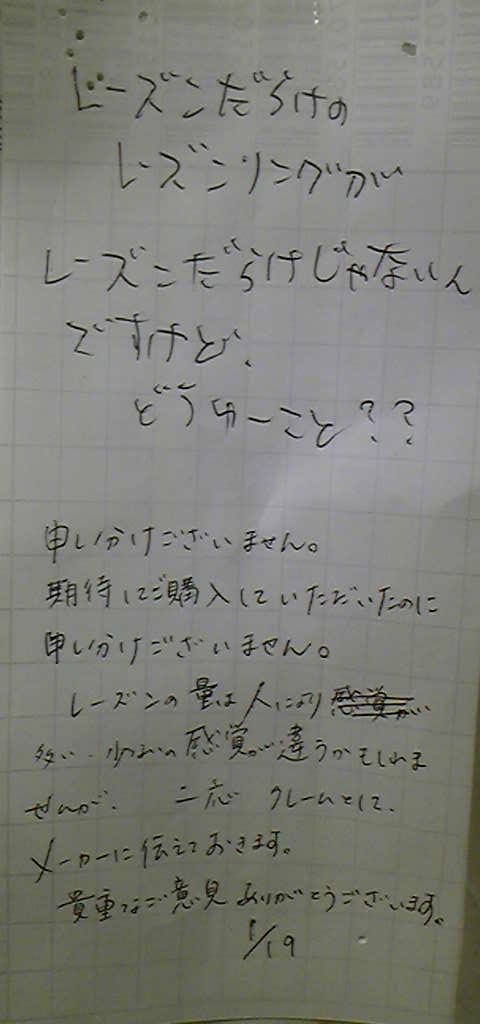 レーズンだらけの
レーズンリングが
レーズンだらけじゃないん
ですけど、
どうゆーこと??
申し分けございません。
期待してご購入していただいたのに
申し分けございません。
レーズンの量は人により感覚が
多い・少ないの感覚が違うかもしれま
せんが、一応クレームとして、
メーカーに伝えておきます。
貴重なご意見ありがとうございます。
1/19